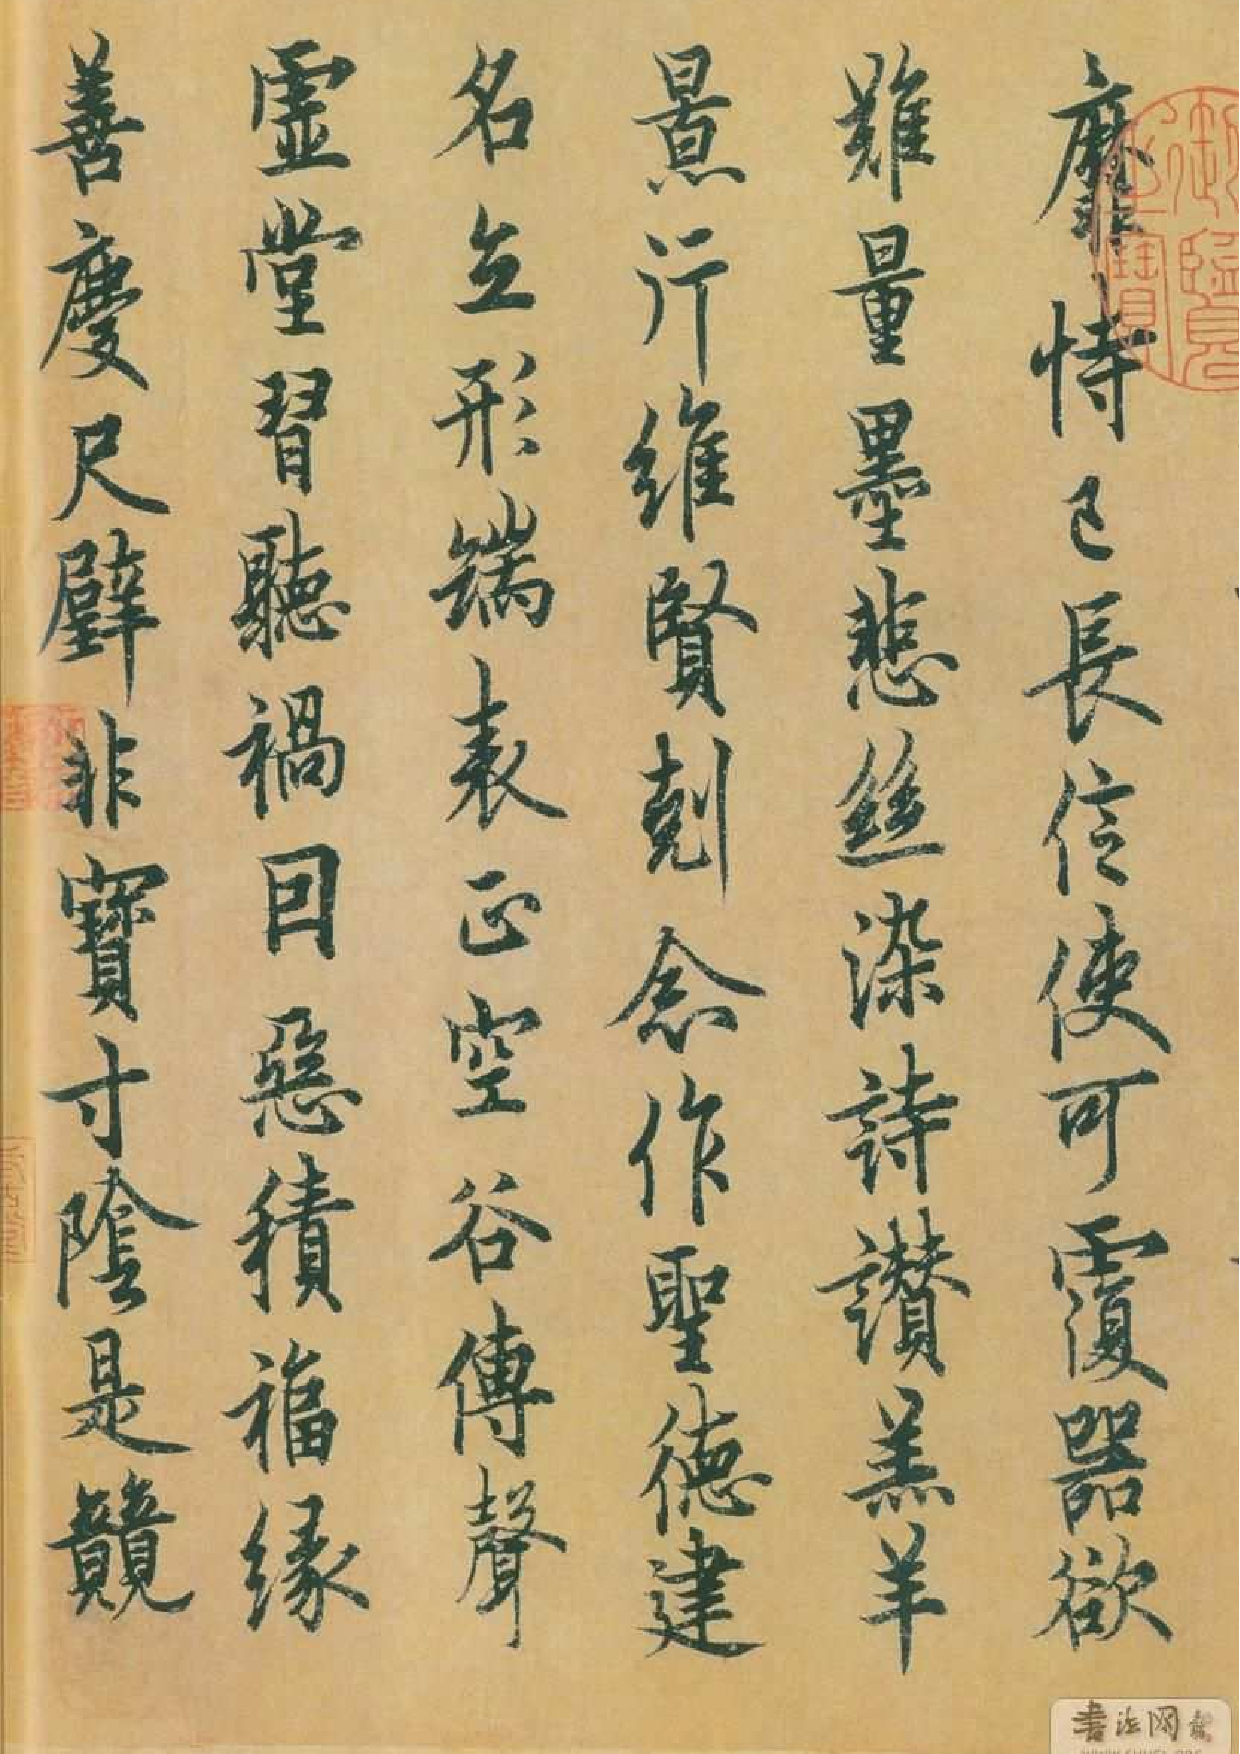 靡恃己長信使可覆器欲
難量墨悲絲染詩讚羔羊
景行維賢剋念作聖德建
名立形端表正空谷傳聲
虛堂習聽禍因惡積福緣
善慶尺璧非寶寸陰是競
御覽之寶
書法网